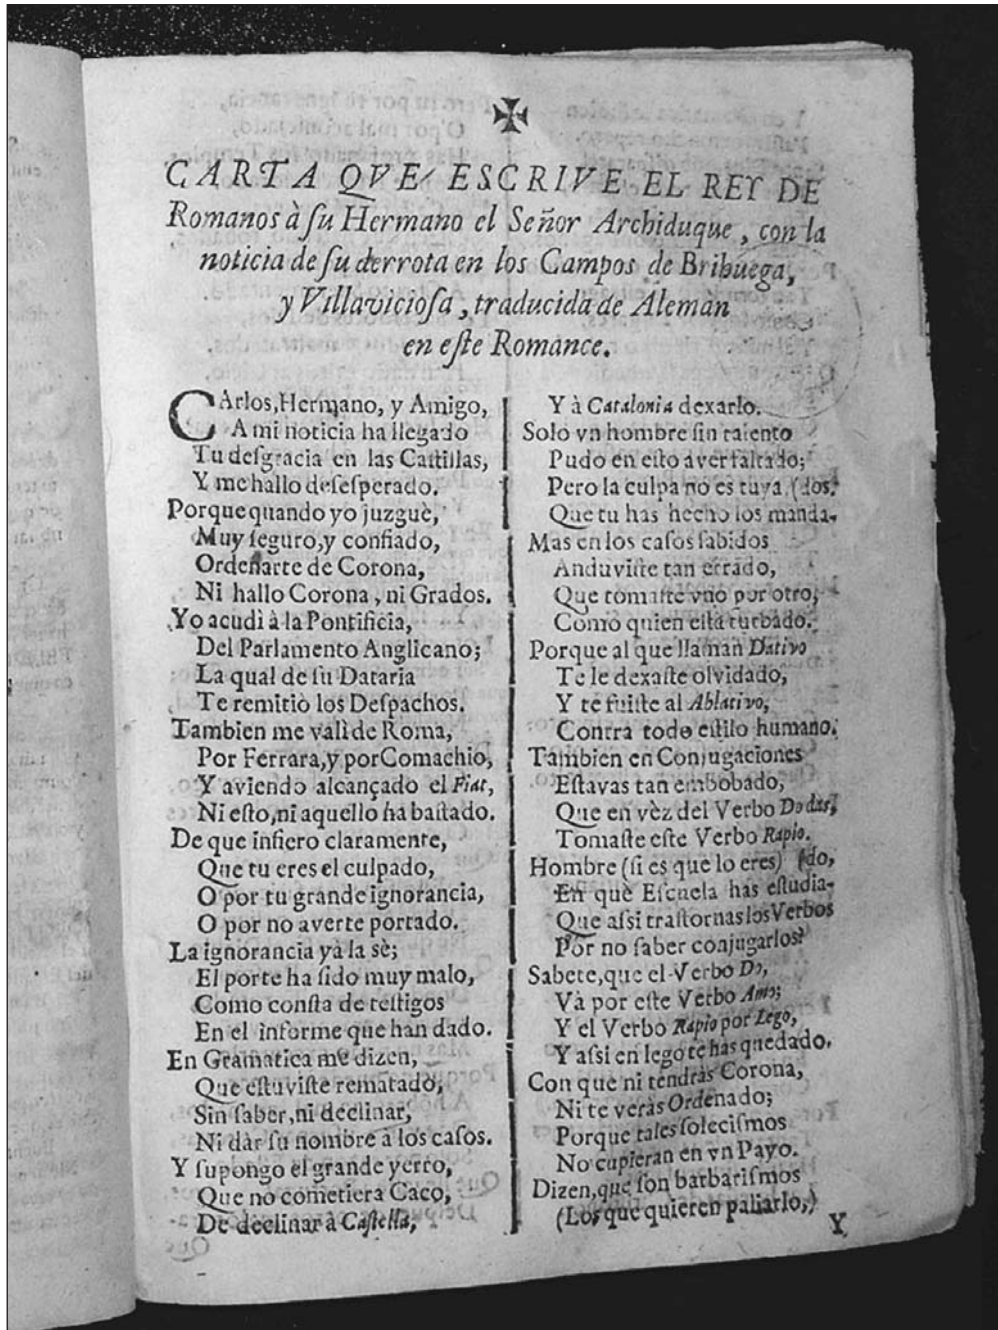 CARTA QVE ESCRIVE EL REY DE
Romanos à ſu Hermano el Señor Archiduque, con la
noticia de ſu derrota en los Campos de Brihuega,
y Villavicioſa, traducida de Alemàn
en eſte Romance.
CArlos, Hermano, y Amigo,
A mi noticia ha llegado
Tu deſgracia en las Caſtillas,
Y me hallo deſeſperado.
Porque quando yo juzguè,
Muy ſeguro, y confiado,
Ordenarte de Corona,
Ni hallo Corona, ni Grados.
Yo acudì à la Pontificia,
Del Parlamento Anglicano;
La qual de ſu Dataria
Te remitiò los Deſpachos.
Tambien me valì de Roma,
Por Ferrara, y por Comachio,
Y aviendo alcançado el Fiat,
Ni eſto, ni aquello ha baſtado.
De que infiero claramente,
Que tu eres el culpado,
O por tu grande ignorancia,
O por no averte portado.
La ignorancia yà la sè;
El porte ha ſido muy malo,
Como conſta de teſtigos
En el informe que han dado.
En Gramatica me dizen,
Que eſtuviſte rematado,
Sin ſaber, ni declinar,
Ni dàr ſu nombre à los caſos.
Y ſupongo el grande yerro,
Que no cometiera Caco,
De declinar à Caſtella,
Y à Catalonia dexarlo.
Solo vn hombre ſin talento
Pudo en eſto aver faltado;
Pero la culpa no es tuya, (dos.
Que tu has hecho los manda-
Mas en los caſos ſabidos
Anduviſte tan errado,
Que tomaſte vno por otro,
Como quien eſtà turbado.
Porque al que llaman Dativo
Te le dexaſte olvidado,
Y te fuiſte al Ablativo,
Contra todo eſtilo humano.
Tambien en Conjugaciones
Eſtavas tan embobado,
Que en vèz del Verbo Do das,
Tomaſte eſte Verbo Rapio.
Hombre (ſi es que lo eres) (do,
En què Eſcuela has eſtudia-
Que aſsi traſtornas los Verbos
Por no ſaber conjugarlos?
Sabete, que el Verbo Do,
Và por eſte Verbo Amo;
Y el Verbo Rapio por Lego,
Y aſsi en lego te has quedado.
Con que ni tendràs Corona,
Ni te veràs Ordenado;
Porque tales ſoleciſmos
No cupieran en vn Payo.
Dizen, que ſon barbariſmos
(Los que quieren paliarlo,)
Y